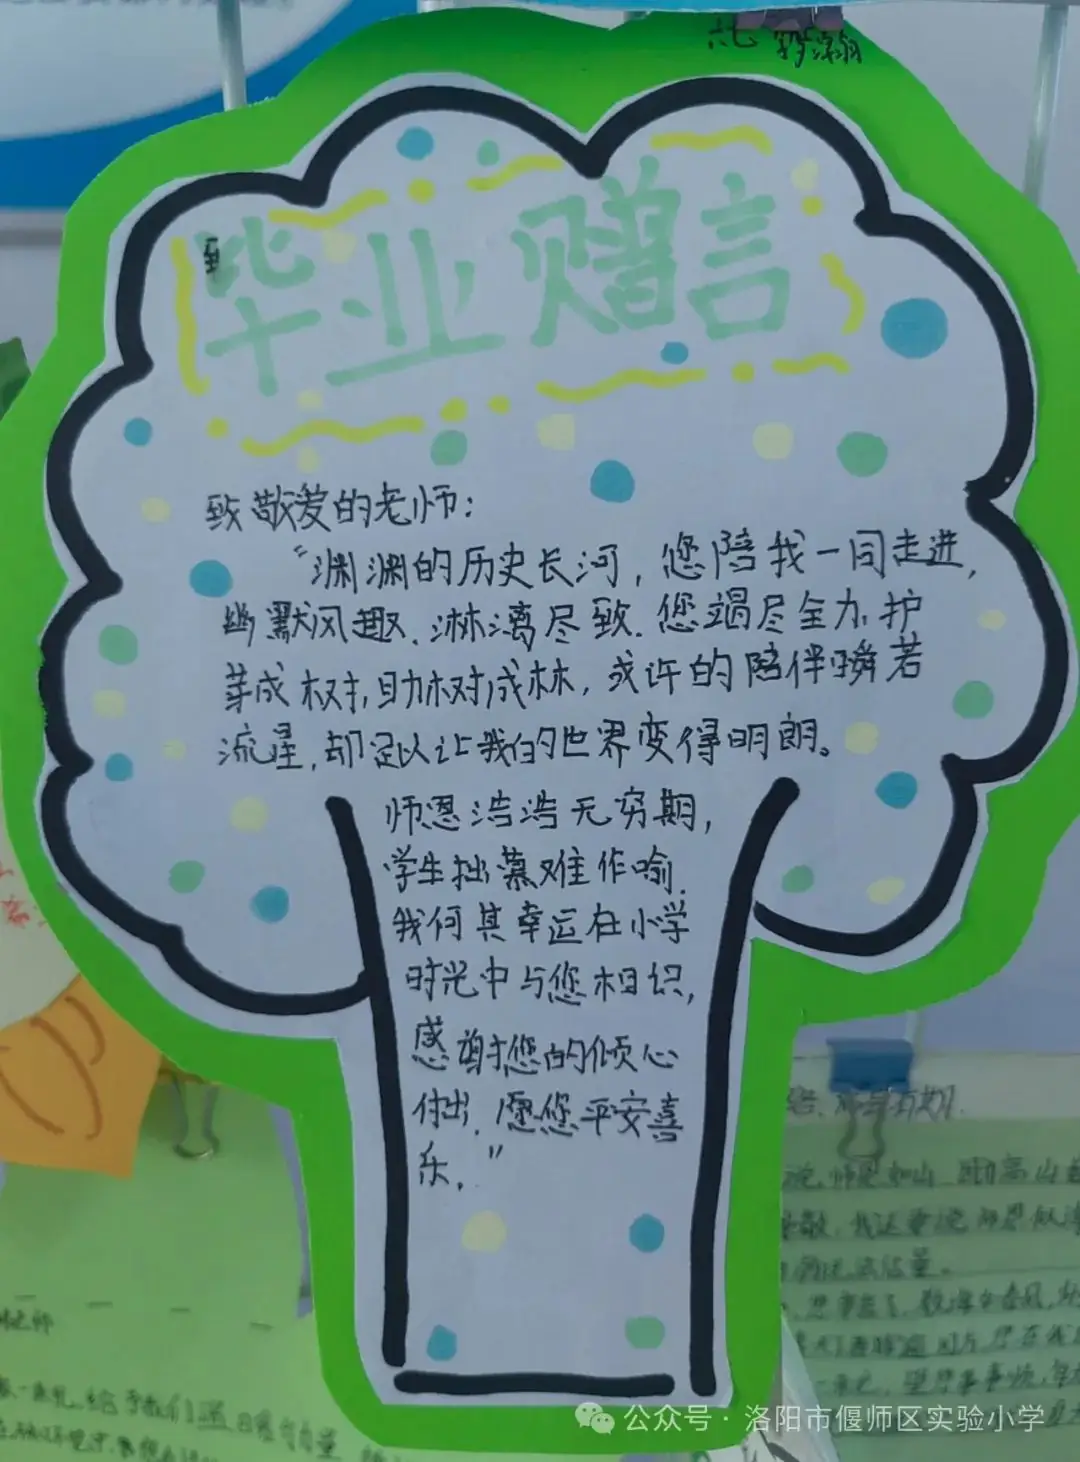 六七
毕业赠言
致敬爱的老师：
“渊渊的历史长河，您陪我一同走进，
幽默风趣、淋漓尽致。您竭尽全力，护
芽成树，助树成林，或许的陪伴瞬若
流星，却足以让我的世界变得明朗。
师恩浩浩无穷期，
学生拙慕难作喻。
我何其幸运在小学
时光中与您相识，
感谢您的倾心
付出，愿您平安喜
乐。”
公众号 · 洛阳市偃师区实验小学